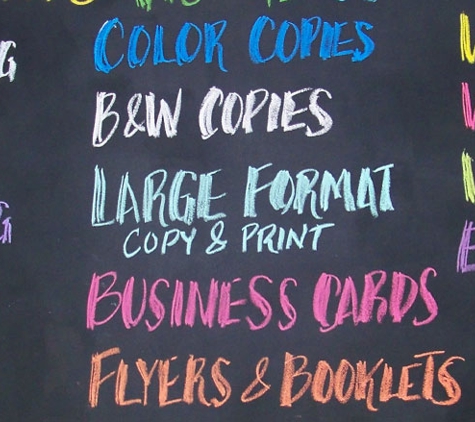 COLOR COPIES
B&W COPIES
LARGE FORMAT
COPY & PRINT
BUSINESS CARDS
FLYERS & BOOKLETS